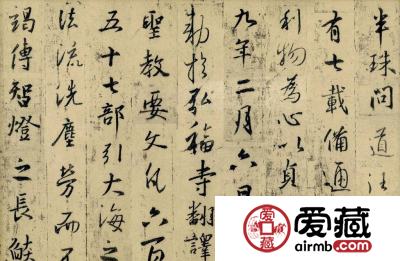 半珠問道往
有七載備通
利物為心以貞
九年二月六日
勅於弘福寺翻譯
聖教要文凡六百
五十七部引大海之
法流洗塵勞而不
竭傳智燈之長焰
爱藏
airmb.com